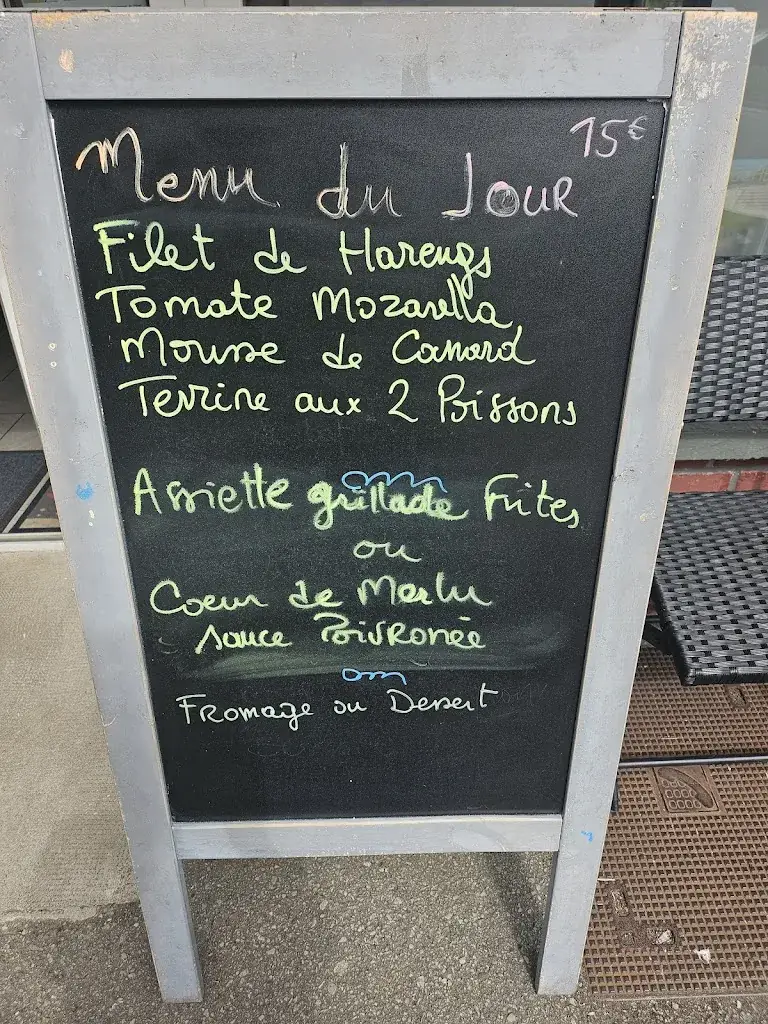 15€
Menu du Jour
Filet de Harengs
Tomate Mozarella
Mousse de Canard
Terrine aux 2 Poissons
Assiette grillade Frites
ou
Coeur de Merlu
sauce Poivronée
Fromage ou Dessert